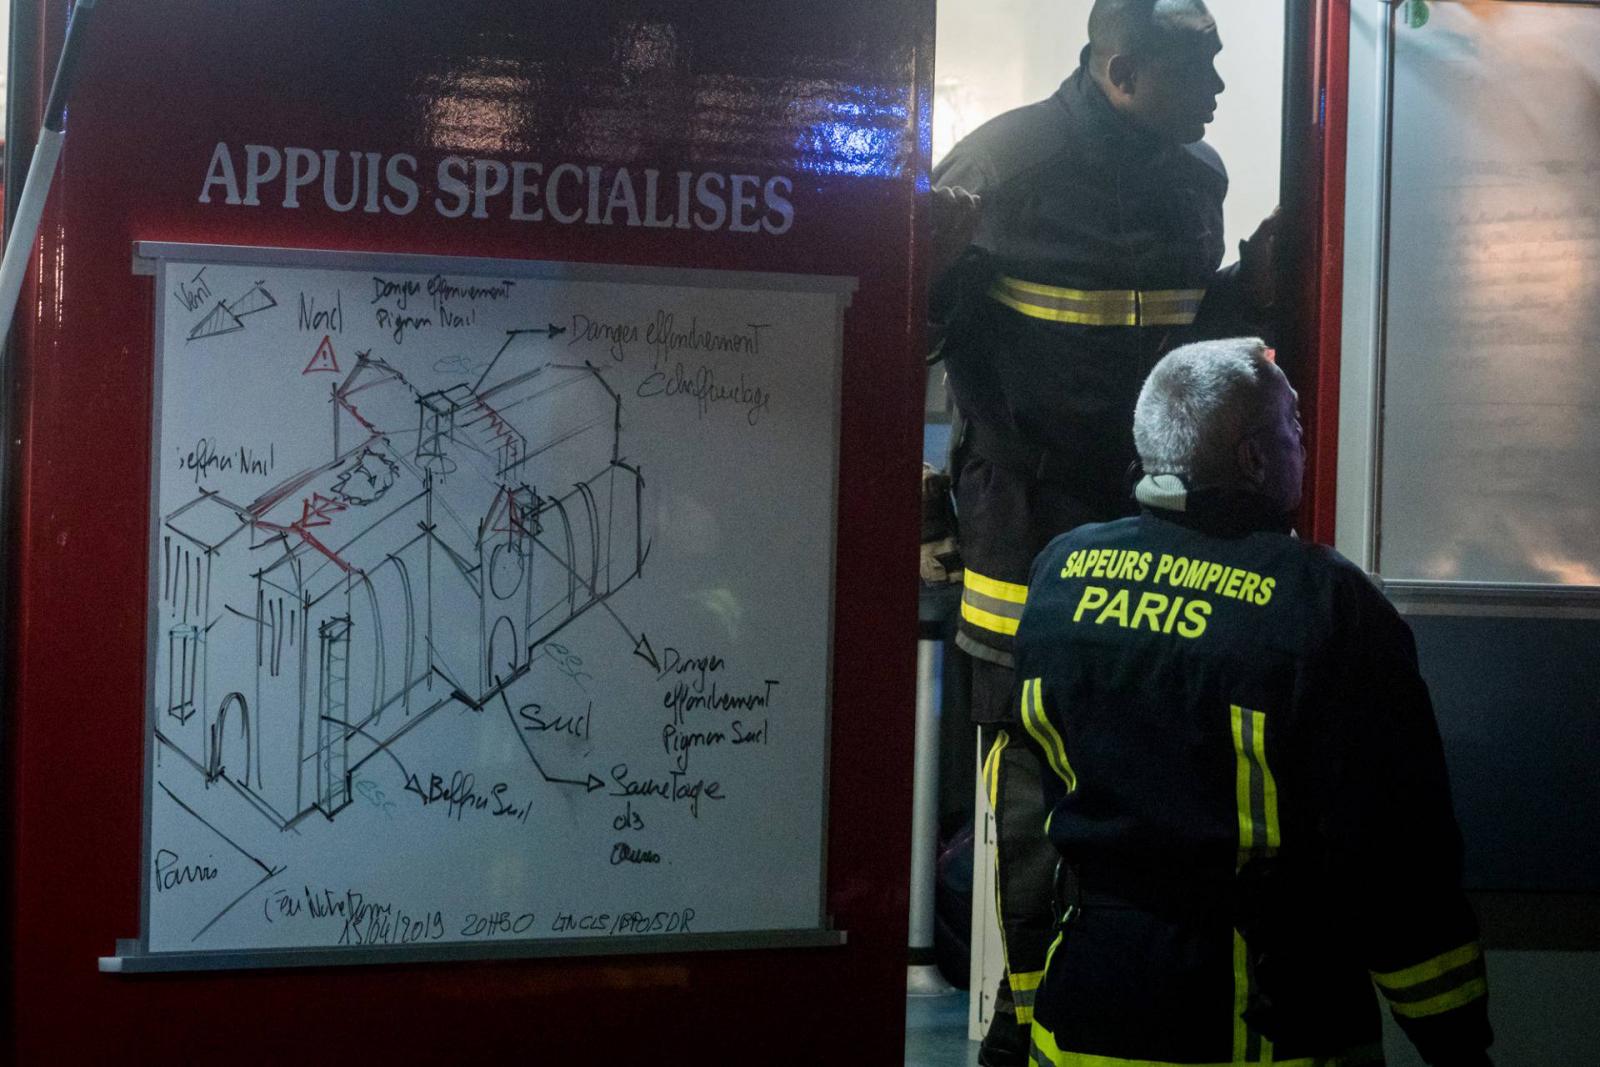 APPUIS SPECIALISES
Vent
Nord
Danger effondrement
Pignon Nord
Danger effondrement
Echaffaudage
esc
Beffroi Nord
Danger
effondrement
Pignon Sud
esc
Sud
Sauvetage
des
esc
Beffroi Sud
Parvis
Feu Notre Dame
15/04/2019 20H50
SAPEURS POMPIERS
PARIS